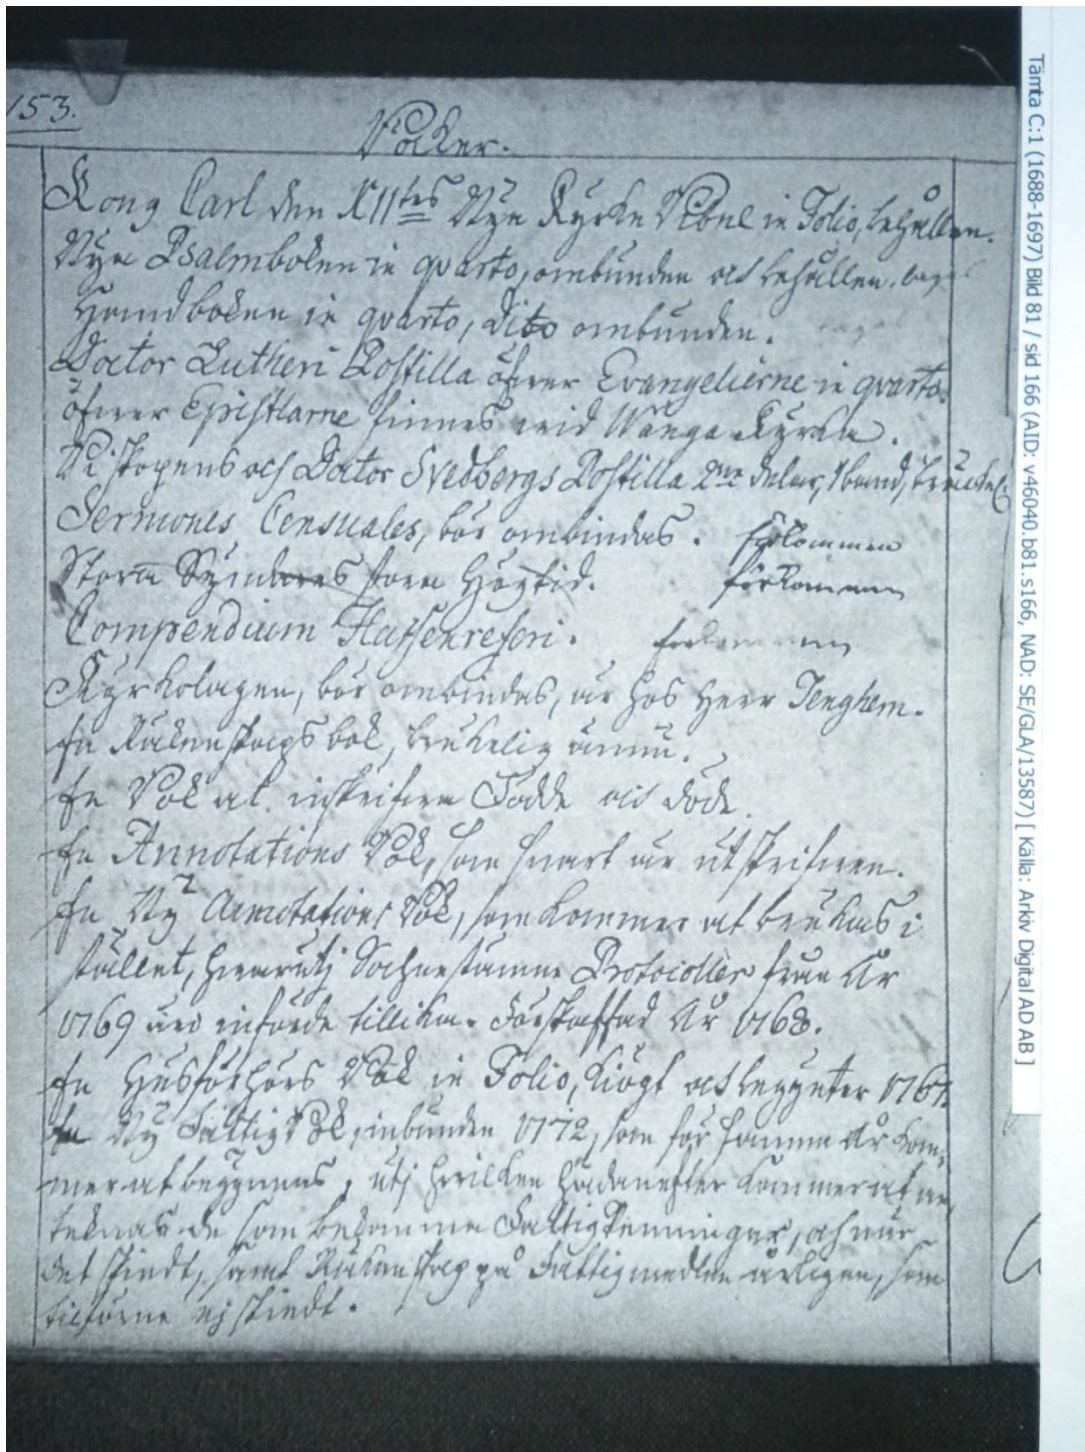 153.
Böcker.
Kong Carl den XII:tes Nya Kyrko Bibel in Folio, behållen.
Nya Psalmboken in qvarto, ombunden och behållen.
Handboken in qvarto, dito ombunden.
Doctor Lutheri Postilla öfwer Evangelierne in qvarto.
öfwer Epistlarne finnes wid Wånga Kyrka.
Biskopens och Doctor Svedbergs Postilla 2ne delar, 1 band, brukel:
Sermones Censuales, bör ombindas. förkommen
Stora Syndares stora Högtid. förkommen
Compendium Hafenreferi. förkommen
Kyrkolagen, bör ombindas, är hos Herr Tenghem.
En Räkenskaps bok, brukelig ännu.
En Bok at inskrifwa Födde och döde.
En Annotations Bok, som snart är utskrifwen.
En Ny Annotations Bok, som kommer at brukas i
stället, hwarutj Sochnestämne Protocoller från År
1769 äro införde tillika. Förskaffad År 1768.
En Husförhörs Bok in Folio, kiögt och begynter 1767.
En Ny Fattig Bok, inbunden 1772, som för samma År kom-
mer at begynnas, utj hwilken hädanefter kommer at an-
teknas de som bekomma Fattig Penningar, och när
det skiedt, samt Räkenskap på Fattigmedlen årligen, som
tilförne ej skiedt.
Tämta C:1 (1688-1697) Bild 81 / sid 166 (AID: v46040.b81.s166, NAD: SE/GLA/13587) [ Källa: Arkiv Digital AD AB ]